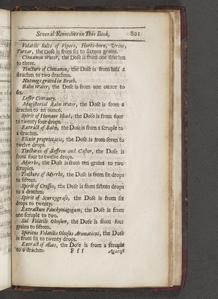 Several Remedies in This Book. 801
Volatile Salts of Vipers, Harts-horn, Urine,
Tartar, the Dose is from six to sixteen grains.
Cinnamon Water, the Dose is from one drachm
to three.
Tincture of Cinnamon, the Dose is from half a
drachm to a drachm.
Nutmegs grated in Broth.
Balm Water, the Dose is from one ounce to
six.
Lesser Centaury.
Magisterial Balm Water, the Dose is from
one
Spirit of Humane Blood, the Dose is from four
to twenty four drops.
Extract of Balm, the Dose is from a scruple
to a drachm.
Elixir proprietatis, the Dose is from seven to
twelve drops.
Tinctures of Saffron and Castor, the Dose is
from four to twelve drops.
Myrrhe, the Dose is from ten grains to two
scruples.
Tincture of Myrrhe, the Dose is from six to
drops.
Spirit of Crollius, the Dose is from fifteen drops
to a drachm.
Spirit of Scurvygrass, the Dose is from six
drops to twenty.
Extractum Panchymagogum; the Dose is from
one scruple to two.
Sal Volatile Oleosum, the Dose is from four
to fifteen drops.
Spiritus Volatilis Oleosus Aromaticus, the Dose
is from six to twenty drops.
Extract of Aloes, the Dose is from a scruple
to a drachm. F f f Against